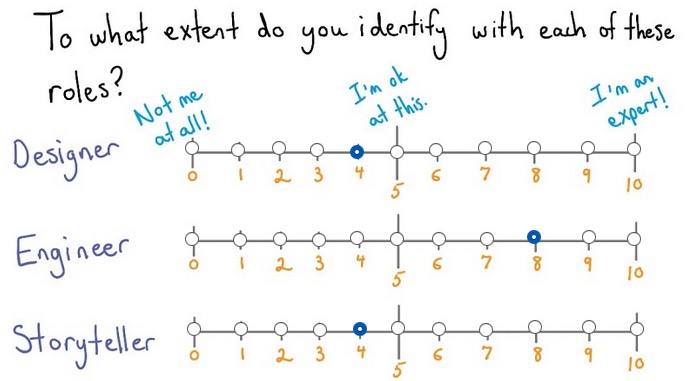 To what extent do you identify with each of these
roles?
Not me
at all!
I'm ok
at this.
I'm an
expert!
Designer
0 1 2 3 4 5 6 7 8 9 10
Engineer
0 1 2 3 4 5 6 7 8 9 10
Storyteller
0 1 2 3 4 5 6 7 8 9 10